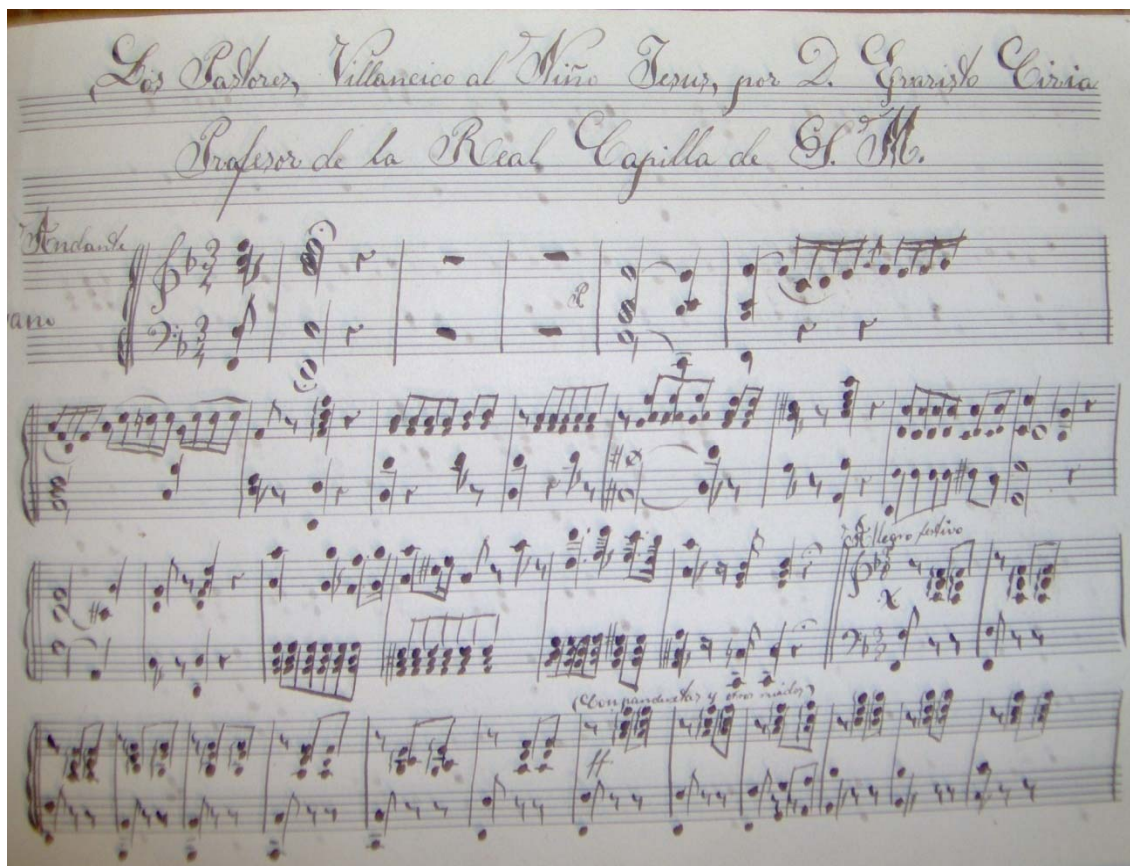 Los Pastores, Villancico al Niño Jesus, por D. Evaristo Ciria
Profesor de la Real Capilla de S. M.
Andante
ano
Allegro festivo
(Con panderetas y otros ruidos)
ff